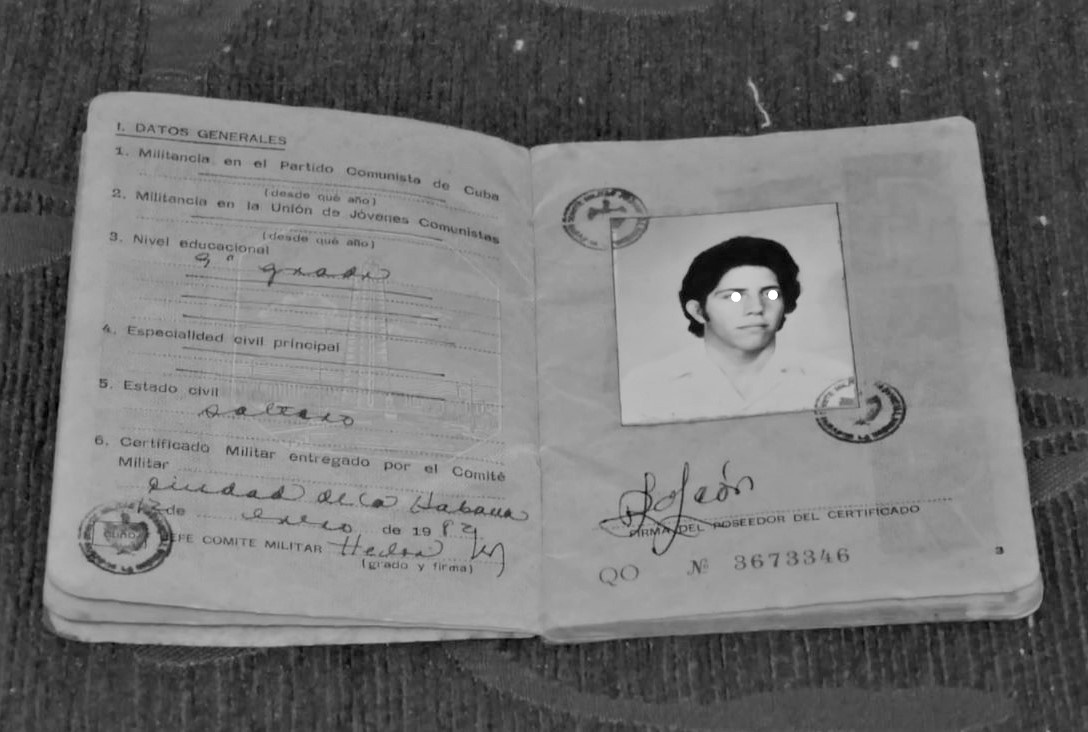 I. DATOS GENERALES
1. Militancia en el Partido Comunista de Cuba
(desde qué año)
2. Militancia en la Unión de Jóvenes Comunistas
(desde qué año)
3. Nivel educacional
9º grado
4. Especialidad civil principal
5. Estado civil
soltero
6. Certificado Militar entregado por el Comité
Militar
Ciudad de la Habana
12 de enero de 19
JEFE COMITE MILITAR
(grado y firma)
FIRMA DEL POSEEDOR DEL CERTIFICADO
QO Nº 3673346
3